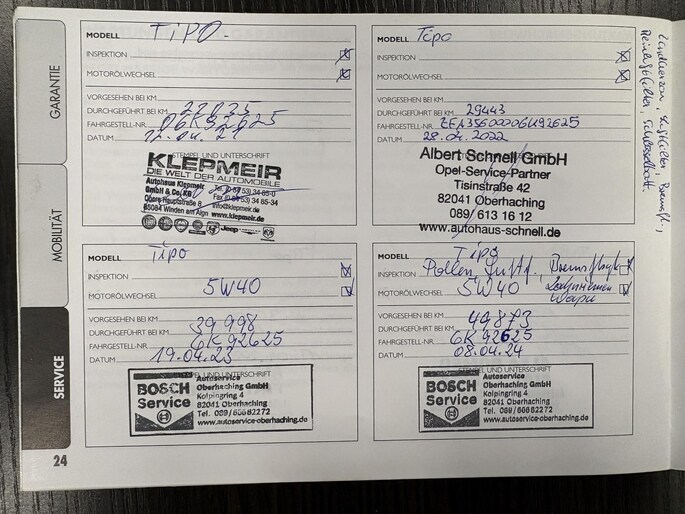 GARANTIE
MOBILITÄT
SERVICE
24
MODELL TIPO
INSPEKTION
MOTORÖLWECHSEL
VORGESEHEN BEI KM
DURCHGEFÜHRT BEI KM
FAHRGESTELL-NR. 06K92625
DATUM
STEMPEL UND UNTERSCHRIFT
KLEPMEIR
DIE WELT DER AUTOMOBILE
Autohaus Klepmeir
GmbH & Co. KG
Ober-Hauptstraße 8
85084 Winden am Aign
34 65-0
34 65-34
info@klepmeir.de
www.klepmeir.de
Jeep
MODELL Tipo
INSPEKTION
MOTORÖLWECHSEL
VORGESEHEN BEI KM
DURCHGEFÜHRT BEI KM 29443
FAHRGESTELL-NR. ZFA35600006K92625
DATUM 28.04.2022
STEMPEL UND UNTERSCHRIFT
Albert Schnell GmbH
Opel-Service-Partner
Tisinstraße 42
82041 Oberhaching
089/ 613 16 12
www.autohaus-schnell.de
MODELL Tipo
INSPEKTION
MOTORÖLWECHSEL 5W40
VORGESEHEN BEI KM
DURCHGEFÜHRT BEI KM 39998
FAHRGESTELL-NR. 6K92625
DATUM 19.04.23
STEMPEL UND UNTERSCHRIFT
BOSCH
Service
Autoservice
Oberhaching GmbH
Kolpingring 4
82041 Oberhaching
Tel. 089/60682272
www.autoservice-oberhaching.de
MODELL Tipo
INSPEKTION Pollen, Luftf.,
MOTORÖLWECHSEL 5W40
VORGESEHEN BEI KM
DURCHGEFÜHRT BEI KM 49873
FAHRGESTELL-NR. 6K92625
DATUM 08.04.24
STEMPEL UND UNTERSCHRIFT
BOSCH
Service
Autoservice
Oberhaching GmbH
Kolpingring 4
82041 Oberhaching
Tel. 089/60682272
www.autoservice-oberhaching.de